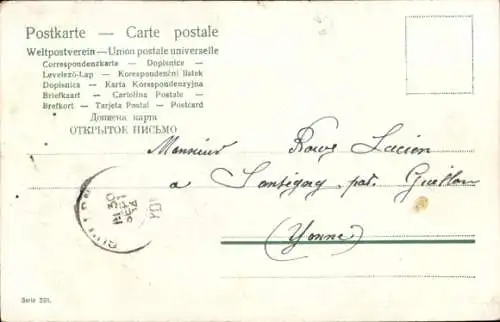 Postkarte — Carte postale
Weltpostverein — Union postale universelle
Correspondenzkarte — Dopisnice —
Levelező-Lap — Korespondenční lístek
Dopisnica — Karta Korespondencyjna
Briefkaart — Cartolina Postale —
Brefkort — Tarjeta Postal — Postcard
Дописна карта
ОТКРЫТОЕ ПИСЬМО
Monsieur Lucien
a Santigny par Guillon
(Yonne)
Serie 291.